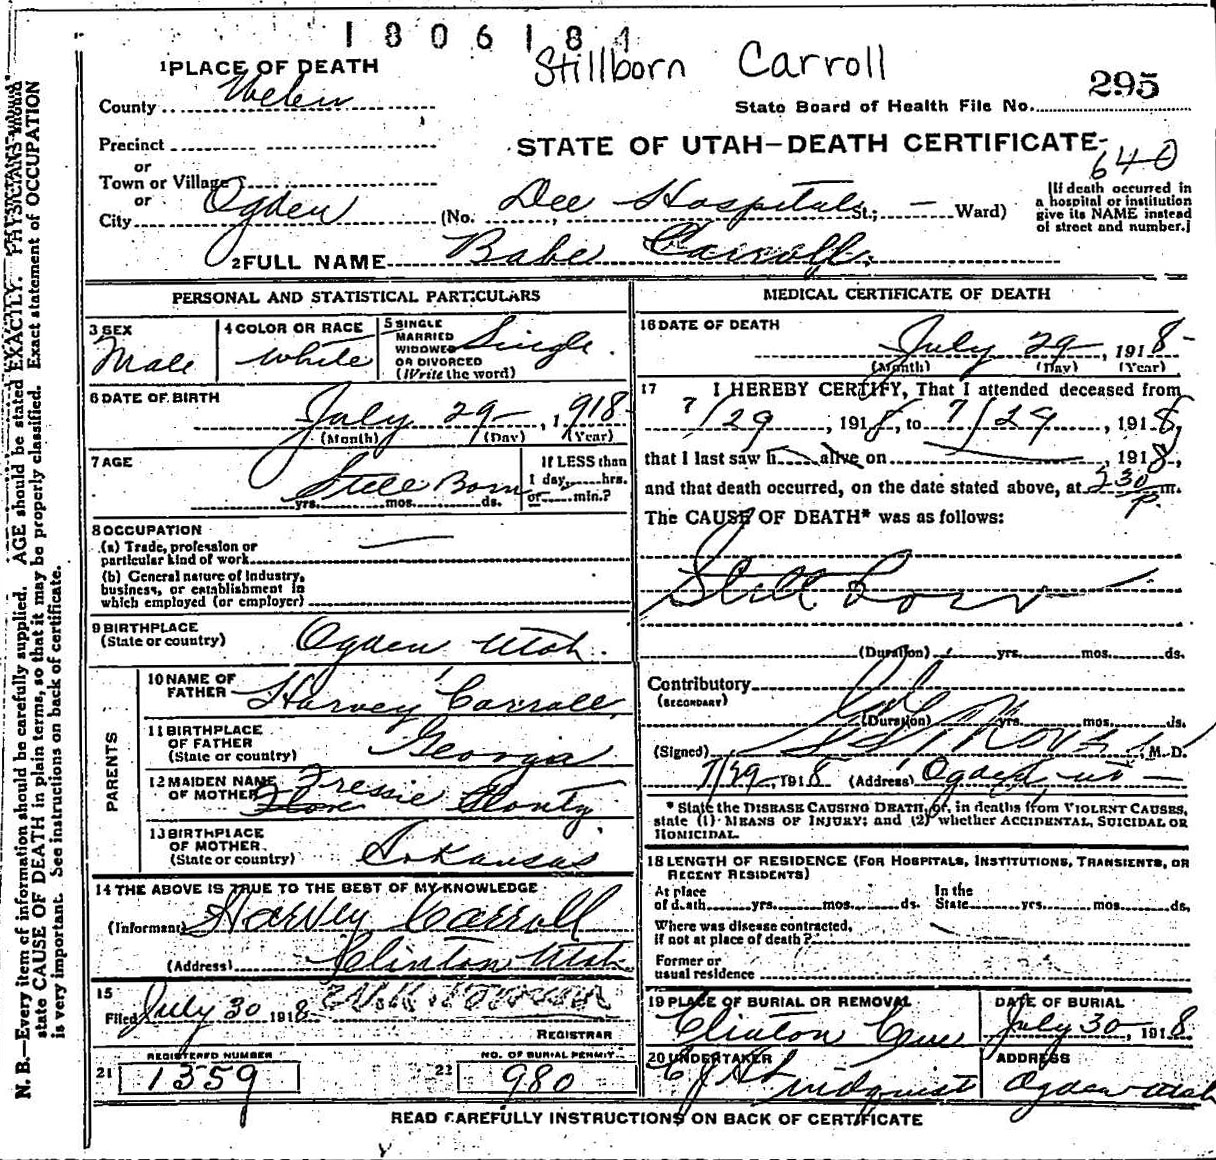 1806184
Stillborn Carroll
295
State Board of Health File No.
1 PLACE OF DEATH
County Weber
STATE OF UTAH—DEATH CERTIFICATE
640
Precinct
or
Town or Village
or
City Ogden (No. Dee Hospital St.; — Ward)
[If death occurred in
a hospital or institution
give its NAME instead
of street and number.]
2 FULL NAME Babe Carroll
PERSONAL AND STATISTICAL PARTICULARS
3 SEX
Male
4 COLOR OR RACE
White
5 SINGLE
MARRIED
WIDOWED
OR DIVORCED
(Write the word)
Single
6 DATE OF BIRTH
July 29, 1918
(Month) (Day) (Year)
7 AGE
Still Born
yrs. mos. ds.
If LESS than
1 day, hrs.
or min.?
8 OCCUPATION
(a) Trade, profession or
particular kind of work
(b) General nature of Industry,
business, or establishment in
which employed (or employer)
9 BIRTHPLACE
(State or country)
Ogden Utah.
PARENTS
10 NAME OF
FATHER
Harvey Carroll
11 BIRTHPLACE
OF FATHER
(State or country)
Georgia
12 MAIDEN NAME
OF MOTHER
Fressie
13 BIRTHPLACE
OF MOTHER
(State or country)
Arkansas
14 THE ABOVE IS TRUE TO THE BEST OF MY KNOWLEDGE
(Informant) Harvey Carroll
(Address) Clinton Utah
15
Filed July 30 1918
REGISTRAR
REGISTERED NUMBER
21 1359
NO. OF BURIAL PERMIT
22 980
MEDICAL CERTIFICATE OF DEATH
16 DATE OF DEATH
July 29, 1918
(Month) (Day) (Year)
17 I HEREBY CERTIFY, That I attended deceased from
7/29, 1918, to 7/29, 1918,
that I last saw h alive on , 1918,
and that death occurred, on the date stated above, at 5 30 P. m.
The CAUSE OF DEATH* was as follows:
Still Born
(Duration) yrs. mos. ds.
Contributory
(SECONDARY)
(Duration) yrs. mos. ds.
(Signed) M. D.
7/29, 1918 (Address) Ogden Ut
* State the DISEASE CAUSING DEATH, or, in deaths from VIOLENT CAUSES,
state (1) MEANS OF INJURY; and (2) whether ACCIDENTAL, SUICIDAL OR
HOMICIDAL.
18 LENGTH OF RESIDENCE (FOR HOSPITALS, INSTITUTIONS, TRANSIENTS, OR
RECENT RESIDENTS)
At place
of death yrs. mos. ds.
In the
State yrs. mos. ds.
Where was disease contracted,
if not at place of death?
Former or
usual residence
19 PLACE OF BURIAL OR REMOVAL
Clinton Cem
DATE OF BURIAL
July 30, 1918
20 UNDERTAKER
Lindquist
ADDRESS
Ogden Utah
READ CAREFULLY INSTRUCTIONS ON BACK OF CERTIFICATE
N. B.—Every item of information should be carefully supplied. AGE should be stated EXACTLY. PHYSICIANS should
state CAUSE OF DEATH in plain terms, so that it may be properly classified. Exact statement of OCCUPATION
is very important. See instructions on back of certificate.